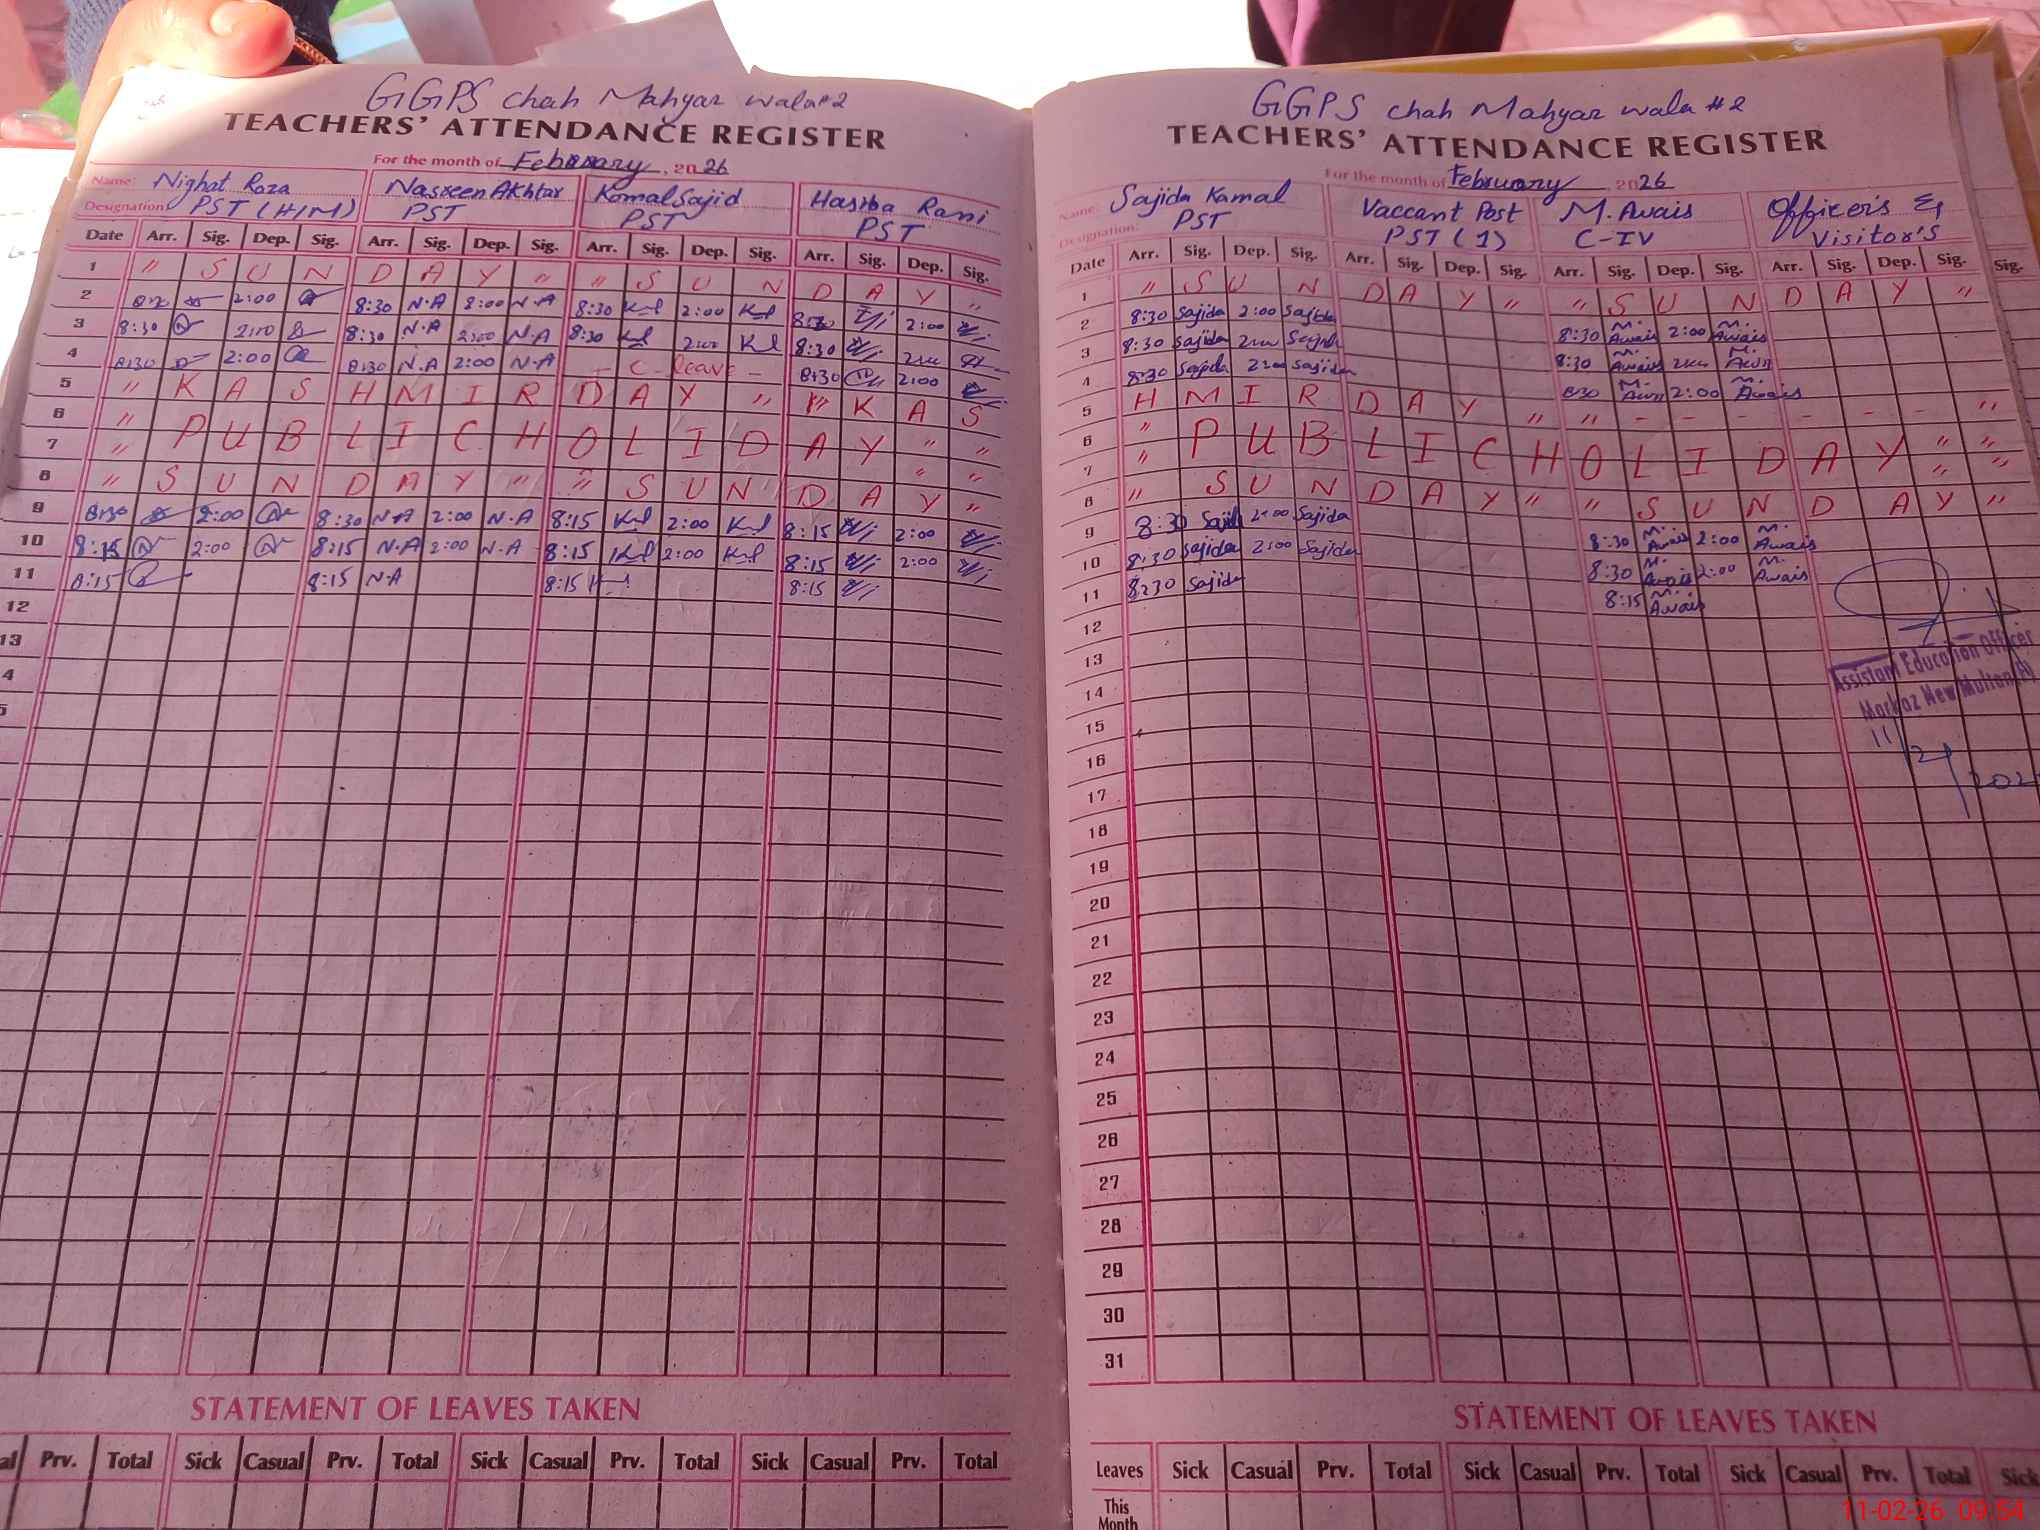 GGPS chah Mahyar wala #2
TEACHERS' ATTENDANCE REGISTER
For the month of February, 2026
Name: Nighat Roza Nasreen Akhtar Komal Sajid Hasiba Rani
Designation: PST (H/M) PST PST PST
Date Arr. Sig. Dep. Sig. Arr. Sig. Dep. Sig. Arr. Sig. Dep. Sig. Arr. Sig. Dep. Sig.
1 " S U N D A Y " " S U N D A Y "
2 2:00 8:30 N.A 2:00 N.A 8:30 2:00 2:00
3 8:30 2:00 8:30 N.A 2:00 N.A 8:30 2:00 8:30 2:00
4 8:30 2:00 8:30 N.A 2:00 N.A - C-leave - 8:30 2:00
5 " K A S H M I R D A Y " " K A S
6 "
7 " P U B L I C H O L I D A Y " "
8 " S U N D A Y " " S U N D A Y "
9 8:30 2:00 8:30 N.A 2:00 N.A 8:15 2:00 8:15 2:00
10 8:15 2:00 8:15 N.A 2:00 N.A 8:15 2:00 8:15 2:00
11 8:15 8:15 N.A 8:15 8:15
12
13
4
5
STATEMENT OF LEAVES TAKEN
al Prv. Total Sick Casual Prv. Total Sick Casual Prv. Total Sick Casual Prv. Total
GGPS chah Mahyar wala #2
TEACHERS' ATTENDANCE REGISTER
For the month of February, 2026
Name: Sajida Kamal Vaccant Post M. Awais Officer's &
Designation: PST PST (1) C-IV Visitor's
Date Arr. Sig. Dep. Sig. Arr. Sig. Dep. Sig. Arr. Sig. Dep. Sig. Arr. Sig. Dep. Sig. Sig.
1 " S U N D A Y " " S U N D A Y "
2 8:30 Sajida 2:00 Sajida 8:30 M. Awais 2:00 M. Awais
3 8:30 Sajida 2:00 Sajida 8:30 M. Awais 2:00 M. Awais
4 8:30 Sajida 2:00 Sajida 8:30 M. Awais 2:00 M. Awais
5 H M I R D A Y " " - - - - - - "
6 "
7 " P U B L I C H O L I D A Y " "
8 " S U N D A Y " " S U N D A Y "
9 8:30 Sajida 2:00 Sajida 8:30 M. Awais 2:00 M. Awais
10 8:30 Sajida 2:00 Sajida 8:30 M. Awais 2:00 M. Awais
11 8:30 Sajida 8:15 M. Awais
12
13
14
15
16
17
18
19
20
21
22
23
24
25
26
27
28
29
30
31
Assistant Education Officer
Markaz New Multan
11/2/202
STATEMENT OF LEAVES TAKEN
Leaves Sick Casual Prv. Total Sick Casual Prv. Total Sick Casual Prv. Total Sick
This
Month
11-02-26 09:54